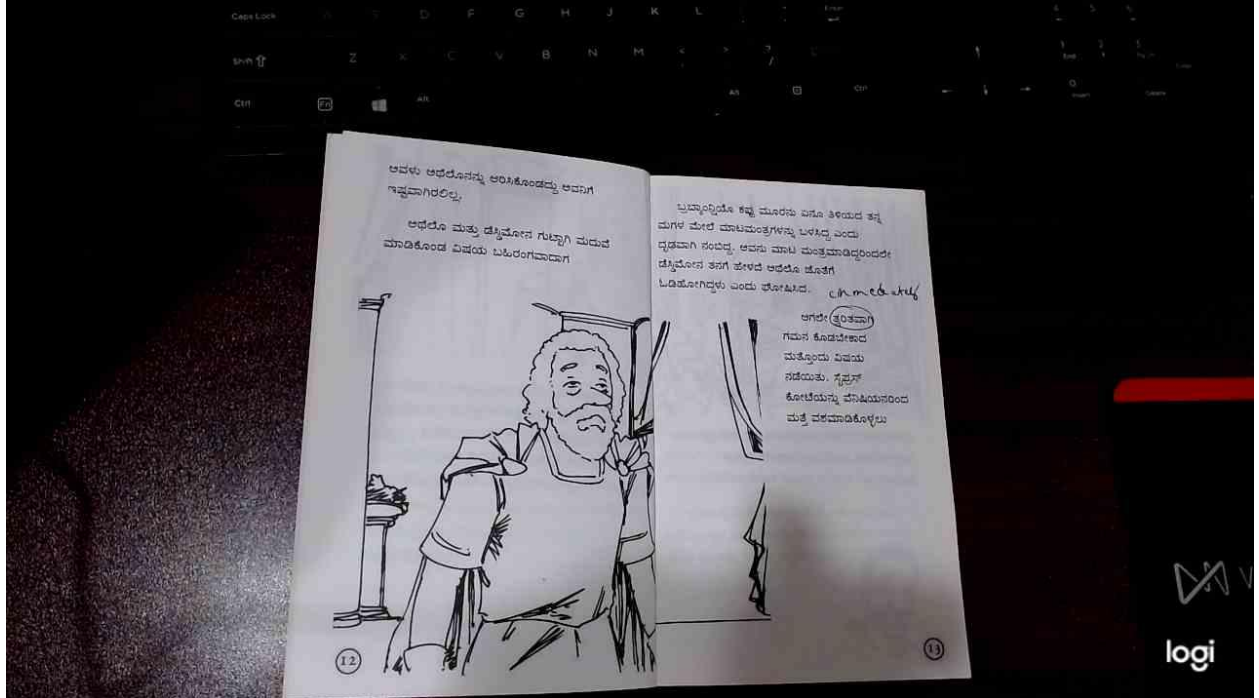 Caps Lock
D F G H J K L
Shift
Z X C V B N M
Ctrl Fn Alt Alt Ctrl
ಅವಳು ಅಥೆಲೊನನ್ನು ಆರಿಸಿಕೊಂಡದ್ದು ಅವನಿಗೆ
ಇಷ್ಟವಾಗಿರಲಿಲ್ಲ.
ಅಥೆಲೊ ಮತ್ತು ಡೆಸ್ಡಿಮೋನ ಗುಟ್ಟಾಗಿ ಮದುವೆ
ಮಾಡಿಕೊಂಡ ವಿಷಯ ಬಹಿರಂಗವಾದಾಗ
12
ಬ್ರಬ್ಯಾಂನ್ಷಿಯೊ ಕಪ್ಪು ಮೂರನು ಏನೂ ತಿಳಿಯದ ತನ್ನ
ಮಗಳ ಮೇಲೆ ಮಾಟಮಂತ್ರಗಳನ್ನು ಬಳಸಿದ್ದ ಎಂದು
ದೃಢವಾಗಿ ನಂಬಿದ್ದ. ಅವನು ಮಾಟ ಮಂತ್ರಮಾಡಿದ್ದರಿಂದಲೇ
ಡೆಸ್ಡಿಮೋನ ತನಗೆ ಹೇಳದೆ ಅಥೆಲೊ ಜೊತೆಗೆ
ಓಡಿಹೋಗಿದ್ದಳು ಎಂದು ಘೋಷಿಸಿದ.
ಆಗಲೇ ತ್ವರಿತವಾಗಿ
ಗಮನ ಕೊಡಬೇಕಾದ
ಮತ್ತೊಂದು ವಿಷಯ
ನಡೆಯಿತು. ಸೈಪ್ರಸ್
ಕೋಟೆಯನ್ನು ವೆನಿಷಿಯನರಿಂದ
ಮತ್ತೆ ವಶಮಾಡಿಕೊಳ್ಳಲು
13
logi